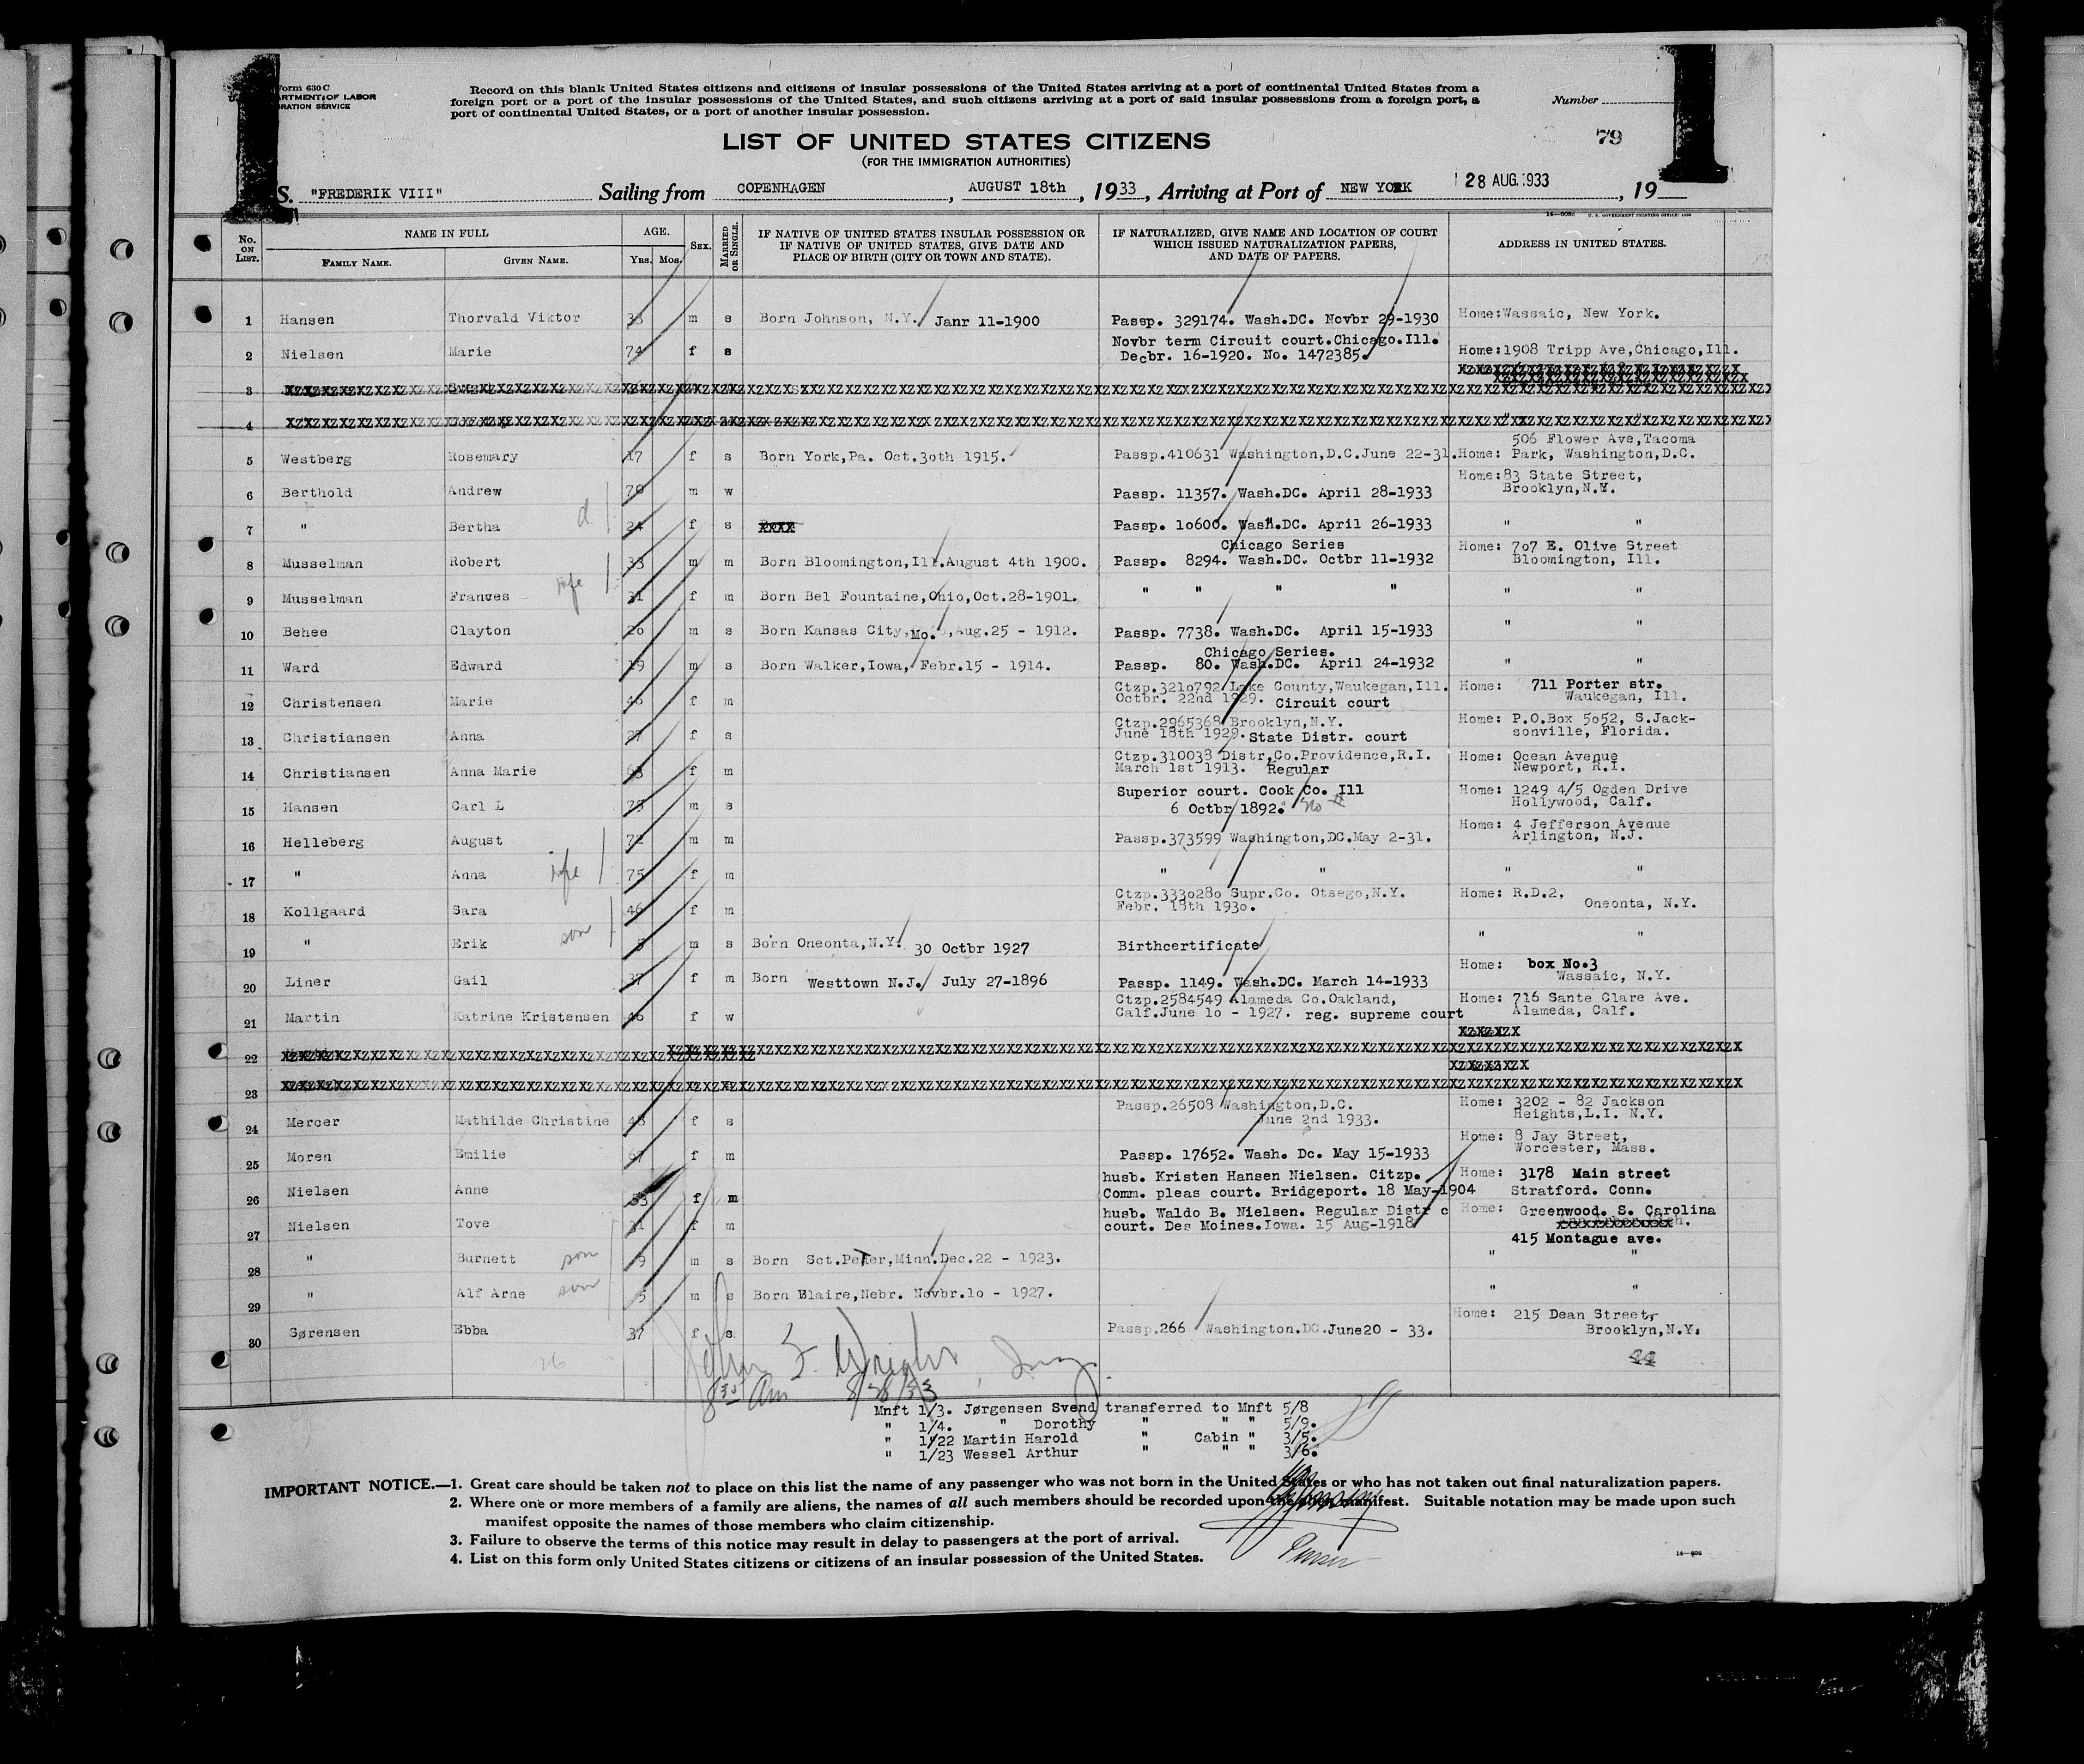 Form 630 C
DEPARTMENT OF LABOR
IMMIGRATION SERVICE
Record on this blank United States citizens and citizens of insular possessions of the United States arriving at a port of continental United States from a
foreign port or a port of the insular possessions of the United States, and such citizens arriving at a port of said insular possessions from a foreign port, a
port of continental United States, or a port of another insular possession.
Number
79
LIST OF UNITED STATES CITIZENS
(FOR THE IMMIGRATION AUTHORITIES)
S. "FREDERIK VIII" Sailing from COPENHAGEN, AUGUST 18th, 1933, Arriving at Port of NEW YORK 28 AUG.1933, 19
No. ON LIST. NAME IN FULL FAMILY NAME. GIVEN NAME. AGE. Yrs. Mos. Sex. MARRIED OR SINGLE. IF NATIVE OF UNITED STATES INSULAR POSSESSION OR IF NATIVE OF UNITED STATES, GIVE DATE AND PLACE OF BIRTH (CITY OR TOWN AND STATE). IF NATURALIZED, GIVE NAME AND LOCATION OF COURT WHICH ISSUED NATURALIZATION PAPERS, AND DATE OF PAPERS. ADDRESS IN UNITED STATES.
1 Hansen Thorvald Viktor 33 m s Born Johnson, N.Y. Janr 11-1900 Passp. 329174. Wash.DC. Novbr 29-1930 Home:Wassaic, New York.
2 Nielsen Marie 74 f s Novbr term Circuit court.Chicago.Ill. Decbr. 16-1920. No. 1472385. Home:1908 Tripp Ave,Chicago,Ill.
3
4 " "
5 Westberg Rosemary 17 f s Born York,Pa. Oct.3oth 1915. Passp.410631 Washington,D.C.June 22-31. Home: 506 Flower Ave,Tacoma Park, Washington,D.C.
6 Berthold Andrew 70 m w Passp. 11357. Wash.DC. April 28-1933 Home:83 State Street, Brooklyn,N.Y.
7 " Bertha d 24 f s XXXX Passp. 1o600. Wash.DC. April 26-1933 " "
8 Musselman Robert 33 m m Born Bloomington,Ill.August 4th 1900. Chicago Series Passp. 8294. Wash.DC. Octbr 11-1932 Home: 7o7 E. Olive Street Bloomington, Ill.
9 Musselman Frances wife 31 f m Born Bel Fountaine,Ohio,Oct.28-1901. " " " " " "
10 Behee Clayton 2o m s Born Kansas City,Mo.,Aug.25 - 1912. Passp. 7738. Wash.DC. April 15-1933 " "
11 Ward Edward 19 m s Born Walker,Iowa, Febr.15 - 1914. Chicago Series. Passp. 80. Wash.DC. April 24-1932 " "
12 Christensen Marie 46 f m Ctzp.321o792 Lake County,Waukegan,Ill. Octbr. 22nd 1929. Circuit court Home: 711 Porter str. Waukegan, Ill.
13 Christiansen Anna 27 f s Ctzp.2965368 Brooklyn,N.Y. June 18th 1929.State Distr. court Home: P.O.Box 5o52, S.Jack- sonville, Florida.
14 Christiansen Anna Marie 63 f m Ctzp.310038 Distr,Co.Providence,R.I. March 1st 1913. Regular Home: Ocean Avenue Newport, R.I.
15 Hansen Carl L 75 m s Superior court. Cook Co. Ill 6 Octbr 1892. no # Home: 1249 4/5 Ogden Drive Hollywood, Calf.
16 Helleberg August 72 m m Passp.373599 Washington,DC.May 2-31. Home: 4 Jefferson Avenue Arlington, N.J.
17 " Anna wife 75 f m " " " "
18 Kollgaard Sara 46 f m Ctzp.333o28o Supr.Co. Otsego,N.Y. Febr. 18th 193o. Home: R.D.2, Oneonta, N.Y.
19 " Erik son 5 m s Born Oneonta,N.Y. 30 Octbr 1927 Birthcertificate " "
20 Liner Gail 37 f m Born Westtown N.J. July 27-1896 Passp. 1149. Wash.DC. March 14-1933 Home: box No.3 Wassaic, N.Y.
21 Martin Katrine Kristensen 46 f w Ctzp.2584549 Alameda Co.Oakland, Calf.June 1o - 1927. reg. supreme court Home: 716 Sante Clare Ave. Alameda, Calf.
22
23
24 Mercer Mathilde Christine 48 f s Passp.26508 Washington,D.C. June 2nd 1933. Home: 3202 - 82 Jackson Heights,L.I. N.Y.
25 Moren Emilie 67 f m Passp. 17652. Wash. Dc. May 15-1933 Home: 8 Jay Street, Worcester, Mass.
26 Nielsen Anne 53 f m husb. Kristen Hansen Nielsen. Citzp. Comm. pleas court. Bridgeport. 18 May-1904 Home: 3178 Main street Stratford. Conn.
27 Nielsen Tove 31 f m husb. Waldo B. Nielsen. Regular Distr c court. Des Moines.Iowa. 15 Aug-1918 Home: Greenwood. S. Carolina 415 Montague ave.
28 " Burnett son 9 m s Born Sct.Peter,Minn.Dec.22 - 1923. " "
29 " Alf Arne son 5 m s Born Blaire,Nebr. Novbr.1o - 1927. " "
30 Sørensen Ebba 37 f s Passp.266 Washington.DC.June20 - 33. Home: 215 Dean Street, Brooklyn,N.Y.
26
44
John F. Wright, Insp
8 30 Am 8/28/33
Mnft 1/3. Jørgensen Svend transferred to Mnft 5/8
" 1/4. " Dorothy " " " 5/9.
" 1/22 Martin Harold " Cabin " 3/5.
" 1/23 Wessel Arthur " " " 3/6.
IMPORTANT NOTICE.—1. Great care should be taken not to place on this list the name of any passenger who was not born in the United States or who has not taken out final naturalization papers.
2. Where one or more members of a family are aliens, the names of all such members should be recorded upon the alien manifest. Suitable notation may be made upon such
manifest opposite the names of those members who claim citizenship.
3. Failure to observe the terms of this notice may result in delay to passengers at the port of arrival.
4. List on this form only United States citizens or citizens of an insular possession of the United States.
Purser